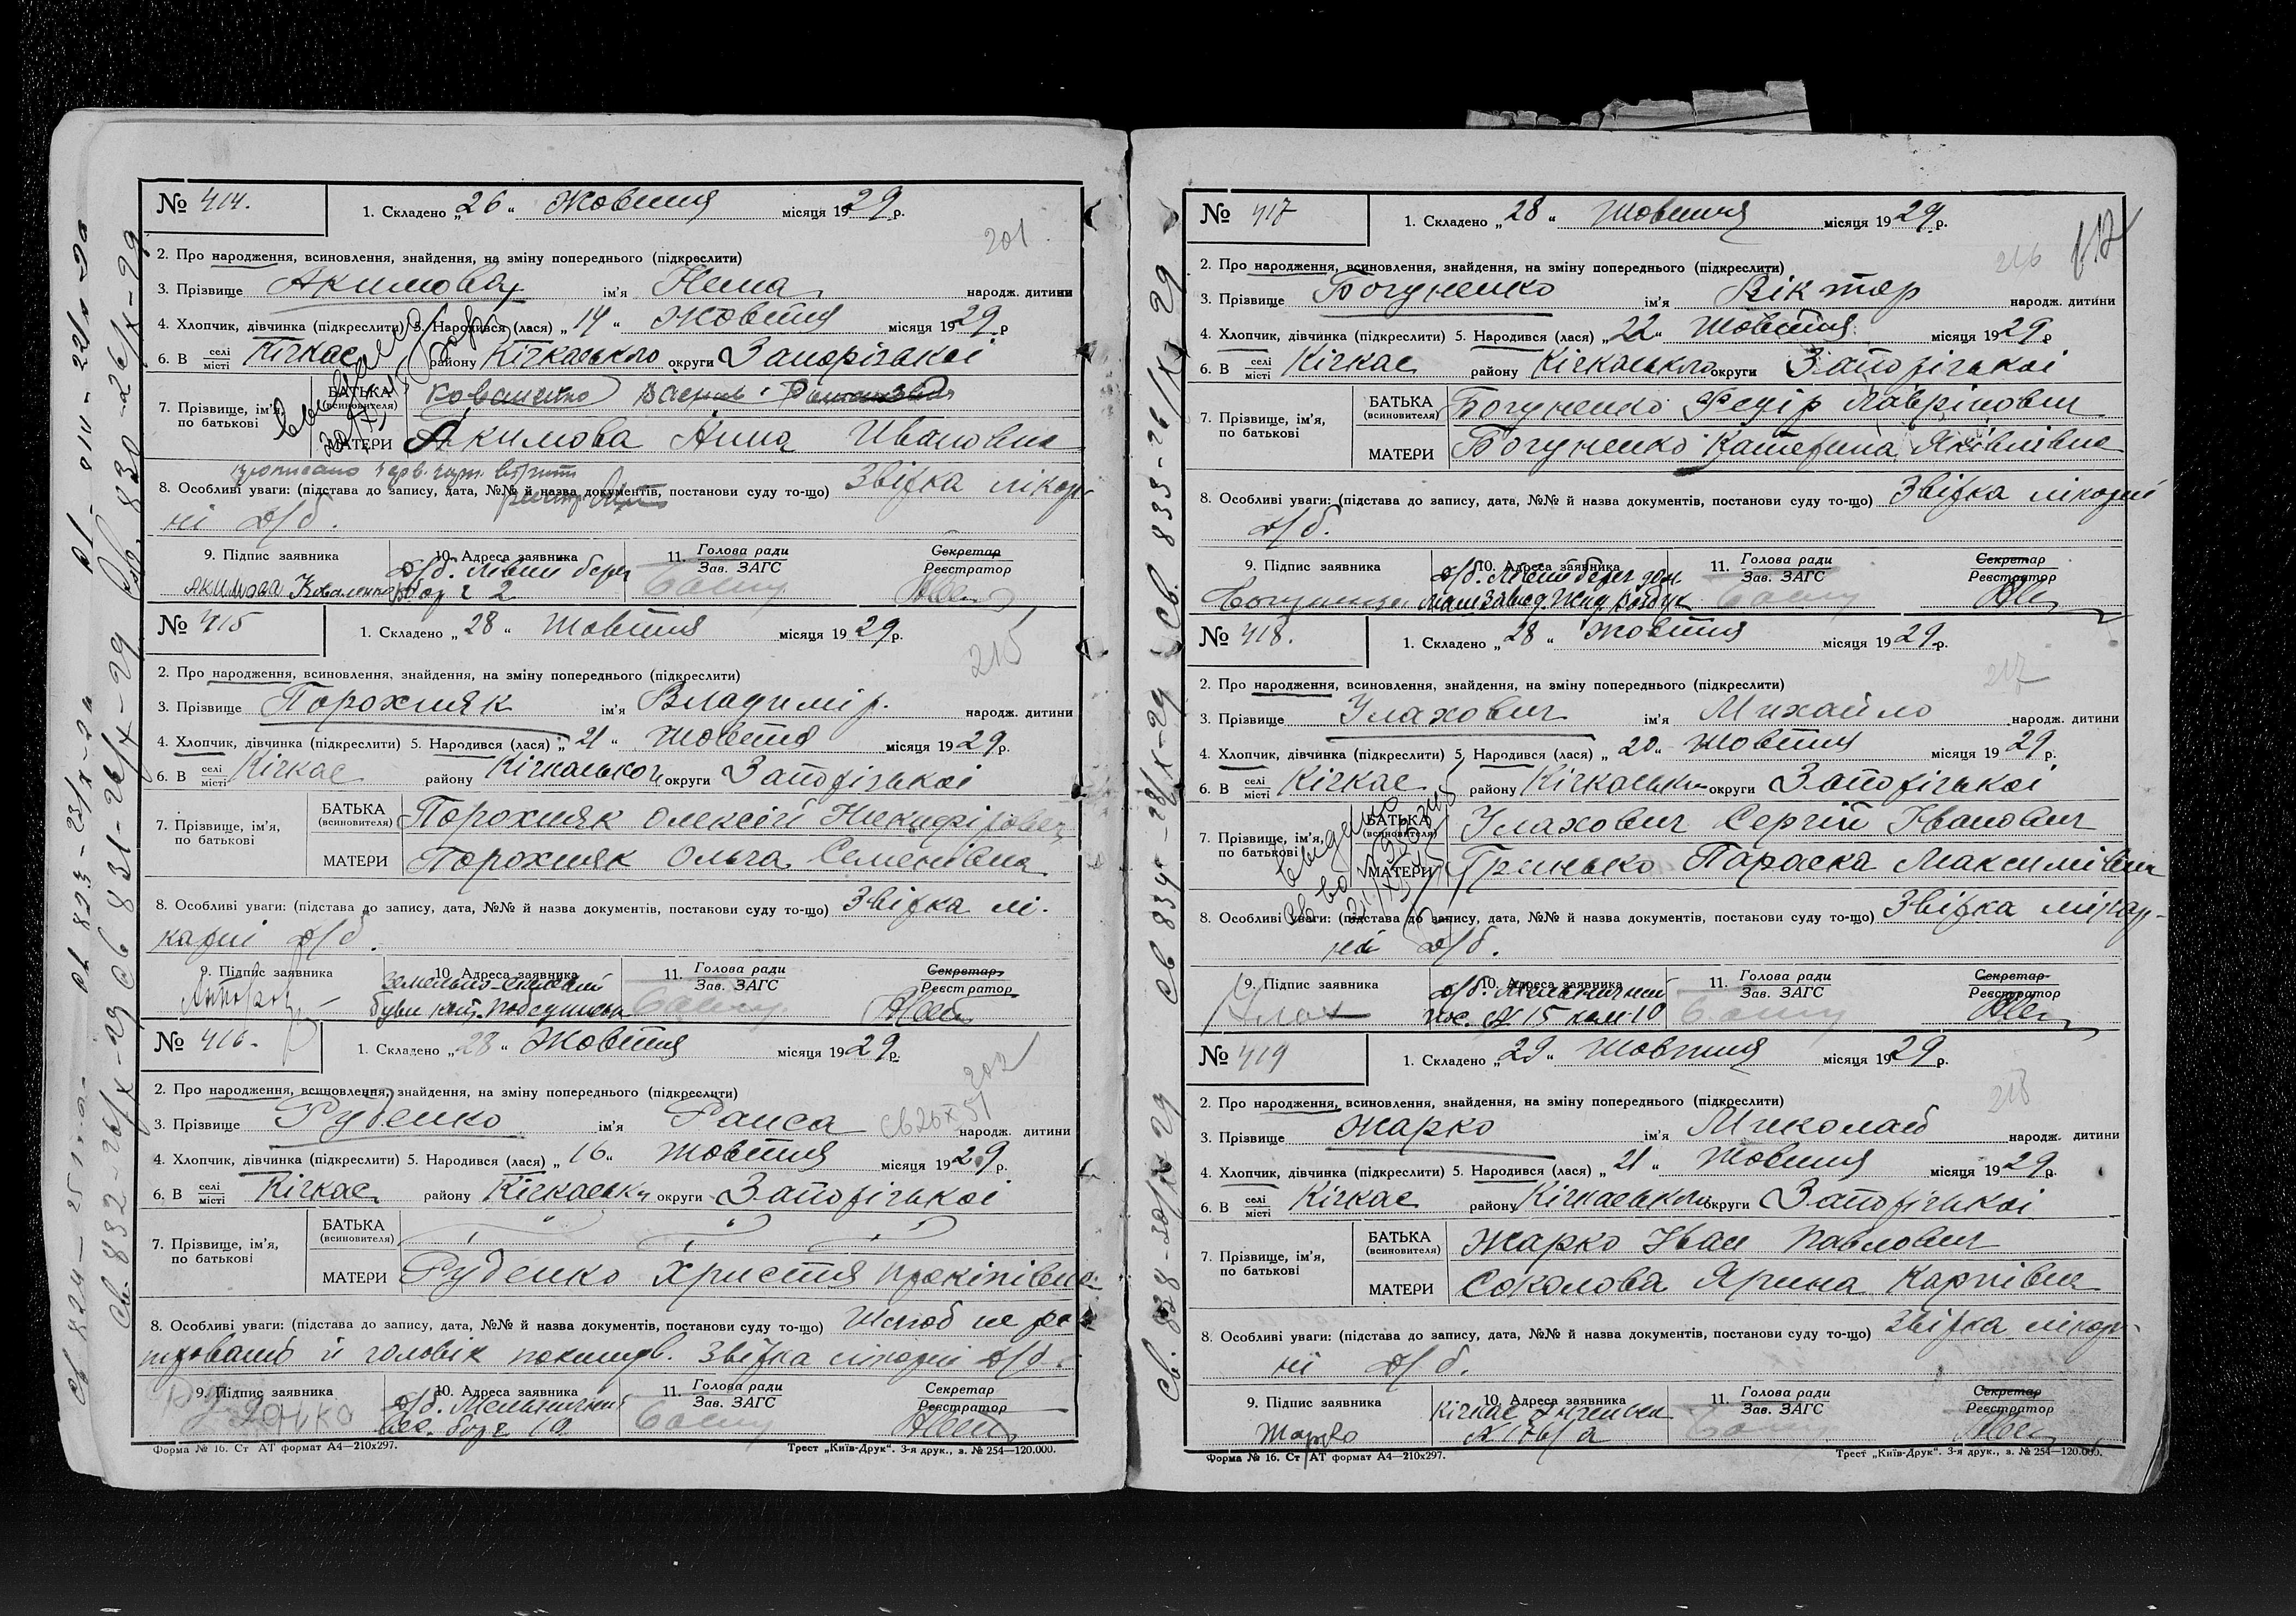 № 414. 1. Складено „26“ Жовтня місяця 1929 р.
201
2. Про народження, всиновлення, знайдення, на зміну попереднього (підкреслити)
3. Прізвище Акимова ім'я народж. дитини
4. Хлопчик, дівчинка (підкреслити) 5. Народився (лася) „14“ Жовтня місяця 1929 р
6. В селі місті Кічкас району Кічкаського округи Запорізької
7. Прізвище, ім'я, по батькові
БАТЬКА (всиновителя) Коваленко Василь
МАТЕРИ Акимова Анна Ивановна
8. Особливі уваги: (підстава до запису, дата, №№ й назва документів, постанови суду то-що) Звістка лікар-
ні д/б.
9. Підпис заявника 10. Адреса заявника 11. Голова ради Зав. ЗАГС Секретар Реєстратор
Акимова Коваленко д/б. Лівий берег
2
№ 415 1. Складено „28“ Жовтня місяця 1929 р.
215
2. Про народження, всиновлення, знайдення, на зміну попереднього (підкреслити)
3. Прізвище Порохняк ім'я Владимір. народж. дитини
4. Хлопчик, дівчинка (підкреслити) 5. Народився (лася) „21“ Жовтня місяця 1929 р.
6. В селі місті Кічкас району Кічкаської округи Запорізької
7. Прізвище, ім'я, по батькові
БАТЬКА (всиновителя) Порохняк Олексій Никифірович
МАТЕРИ Порохняк Ольга Семенівна
8. Особливі уваги: (підстава до запису, дата, №№ й назва документів, постанови суду то-що) Звістка лі-
карні д/б.
9. Підпис заявника 10. Адреса заявника 11. Голова ради Зав. ЗАГС Секретар Реєстратор
№ 416. 1. Складено „28“ Жовтня місяця 1929 р.
202
2. Про народження, всиновлення, знайдення, на зміну попереднього (підкреслити)
3. Прізвище Руденко ім'я Раиса народж. дитини
4. Хлопчик, дівчинка (підкреслити) 5. Народився (лася) „16“ Жовтня місяця 1929 р.
6. В селі місті Кічкас району Кічкаськ округи Запорізької
7. Прізвище, ім'я, по батькові
БАТЬКА (всиновителя)
МАТЕРИ Руденко Христя Прокіпівна
8. Особливі уваги: (підстава до запису, дата, №№ й назва документів, постанови суду то-що) Шлюб не ре
й чоловік покинув. Звістка лікарні д/б.
9. Підпис заявника 10. Адреса заявника 11. Голова ради Зав. ЗАГС Секретар Реєстратор
Форма № 16. Ст АТ формат А4—210х297. Трест „Київ-Друк“. 3-я друк., з. № 254—120.000.
№ 417 1. Складено „28“ Жовтня місяця 1929 р.
216
2. Про народження, всиновлення, знайдення, на зміну попереднього (підкреслити)
3. Прізвище Богуненко ім'я Віктор народж. дитини
4. Хлопчик, дівчинка (підкреслити) 5. Народився (лася) „22“ Жовтня місяця 1929 р
6. В селі місті Кічкас району Кічкаського округи Запорізької
7. Прізвище, ім'я, по батькові
БАТЬКА (всиновителя) Богуненко Федір Лаврінович
МАТЕРИ Богуненко Катерина Яковлівна
8. Особливі уваги: (підстава до запису, дата, №№ й назва документів, постанови суду то-що) Звістка лікарні
д/б.
9. Підпис заявника 10. Адреса заявника 11. Голова ради Зав. ЗАГС Секретар Реєстратор
д/б. Лівий берег
№ 418. 1. Складено „28“ Жовтня місяця 1929 р.
217
2. Про народження, всиновлення, знайдення, на зміну попереднього (підкреслити)
3. Прізвище Улахович ім'я Михайло народж. дитини
4. Хлопчик, дівчинка (підкреслити) 5. Народився (лася) „20“ Жовтня місяця 1929 р.
6. В селі місті Кічкас району Кічкаськи округи Запорізької
7. Прізвище, ім'я, по батькові
БАТЬКА (всиновителя) Улахович Сергій Іванович
МАТЕРИ Гринько Параска Максимівна
8. Особливі уваги: (підстава до запису, дата, №№ й назва документів, постанови суду то-що) Звістка лікар-
ні д/б.
9. Підпис заявника 10. Адреса заявника 11. Голова ради Зав. ЗАГС Секретар Реєстратор
пос. № 15 ком 10
№ 419 1. Складено „29“ Жовтня місяця 1929 р.
218
2. Про народження, всиновлення, знайдення, на зміну попереднього (підкреслити)
3. Прізвище Жарко ім'я Миколай народж. дитини
4. Хлопчик, дівчинка (підкреслити) 5. Народився (лася) „21“ Жовтня місяця 1929 р.
6. В селі місті Кічкас району Кічкаського округи Запорізької
7. Прізвище, ім'я, по батькові
БАТЬКА (всиновителя) Жарко Іван Павлович
МАТЕРИ Соколова Ярина Карпівна
8. Особливі уваги: (підстава до запису, дата, №№ й назва документів, постанови суду то-що) Звістка лікар-
ні д/б.
9. Підпис заявника 10. Адреса заявника 11. Голова ради Зав. ЗАГС Секретар Реєстратор
Жарко Кічкас
Форма № 16. Ст АТ формат А4—210х297. Трест „Київ-Друк“. 3-я друк., з. № 254—120.000.